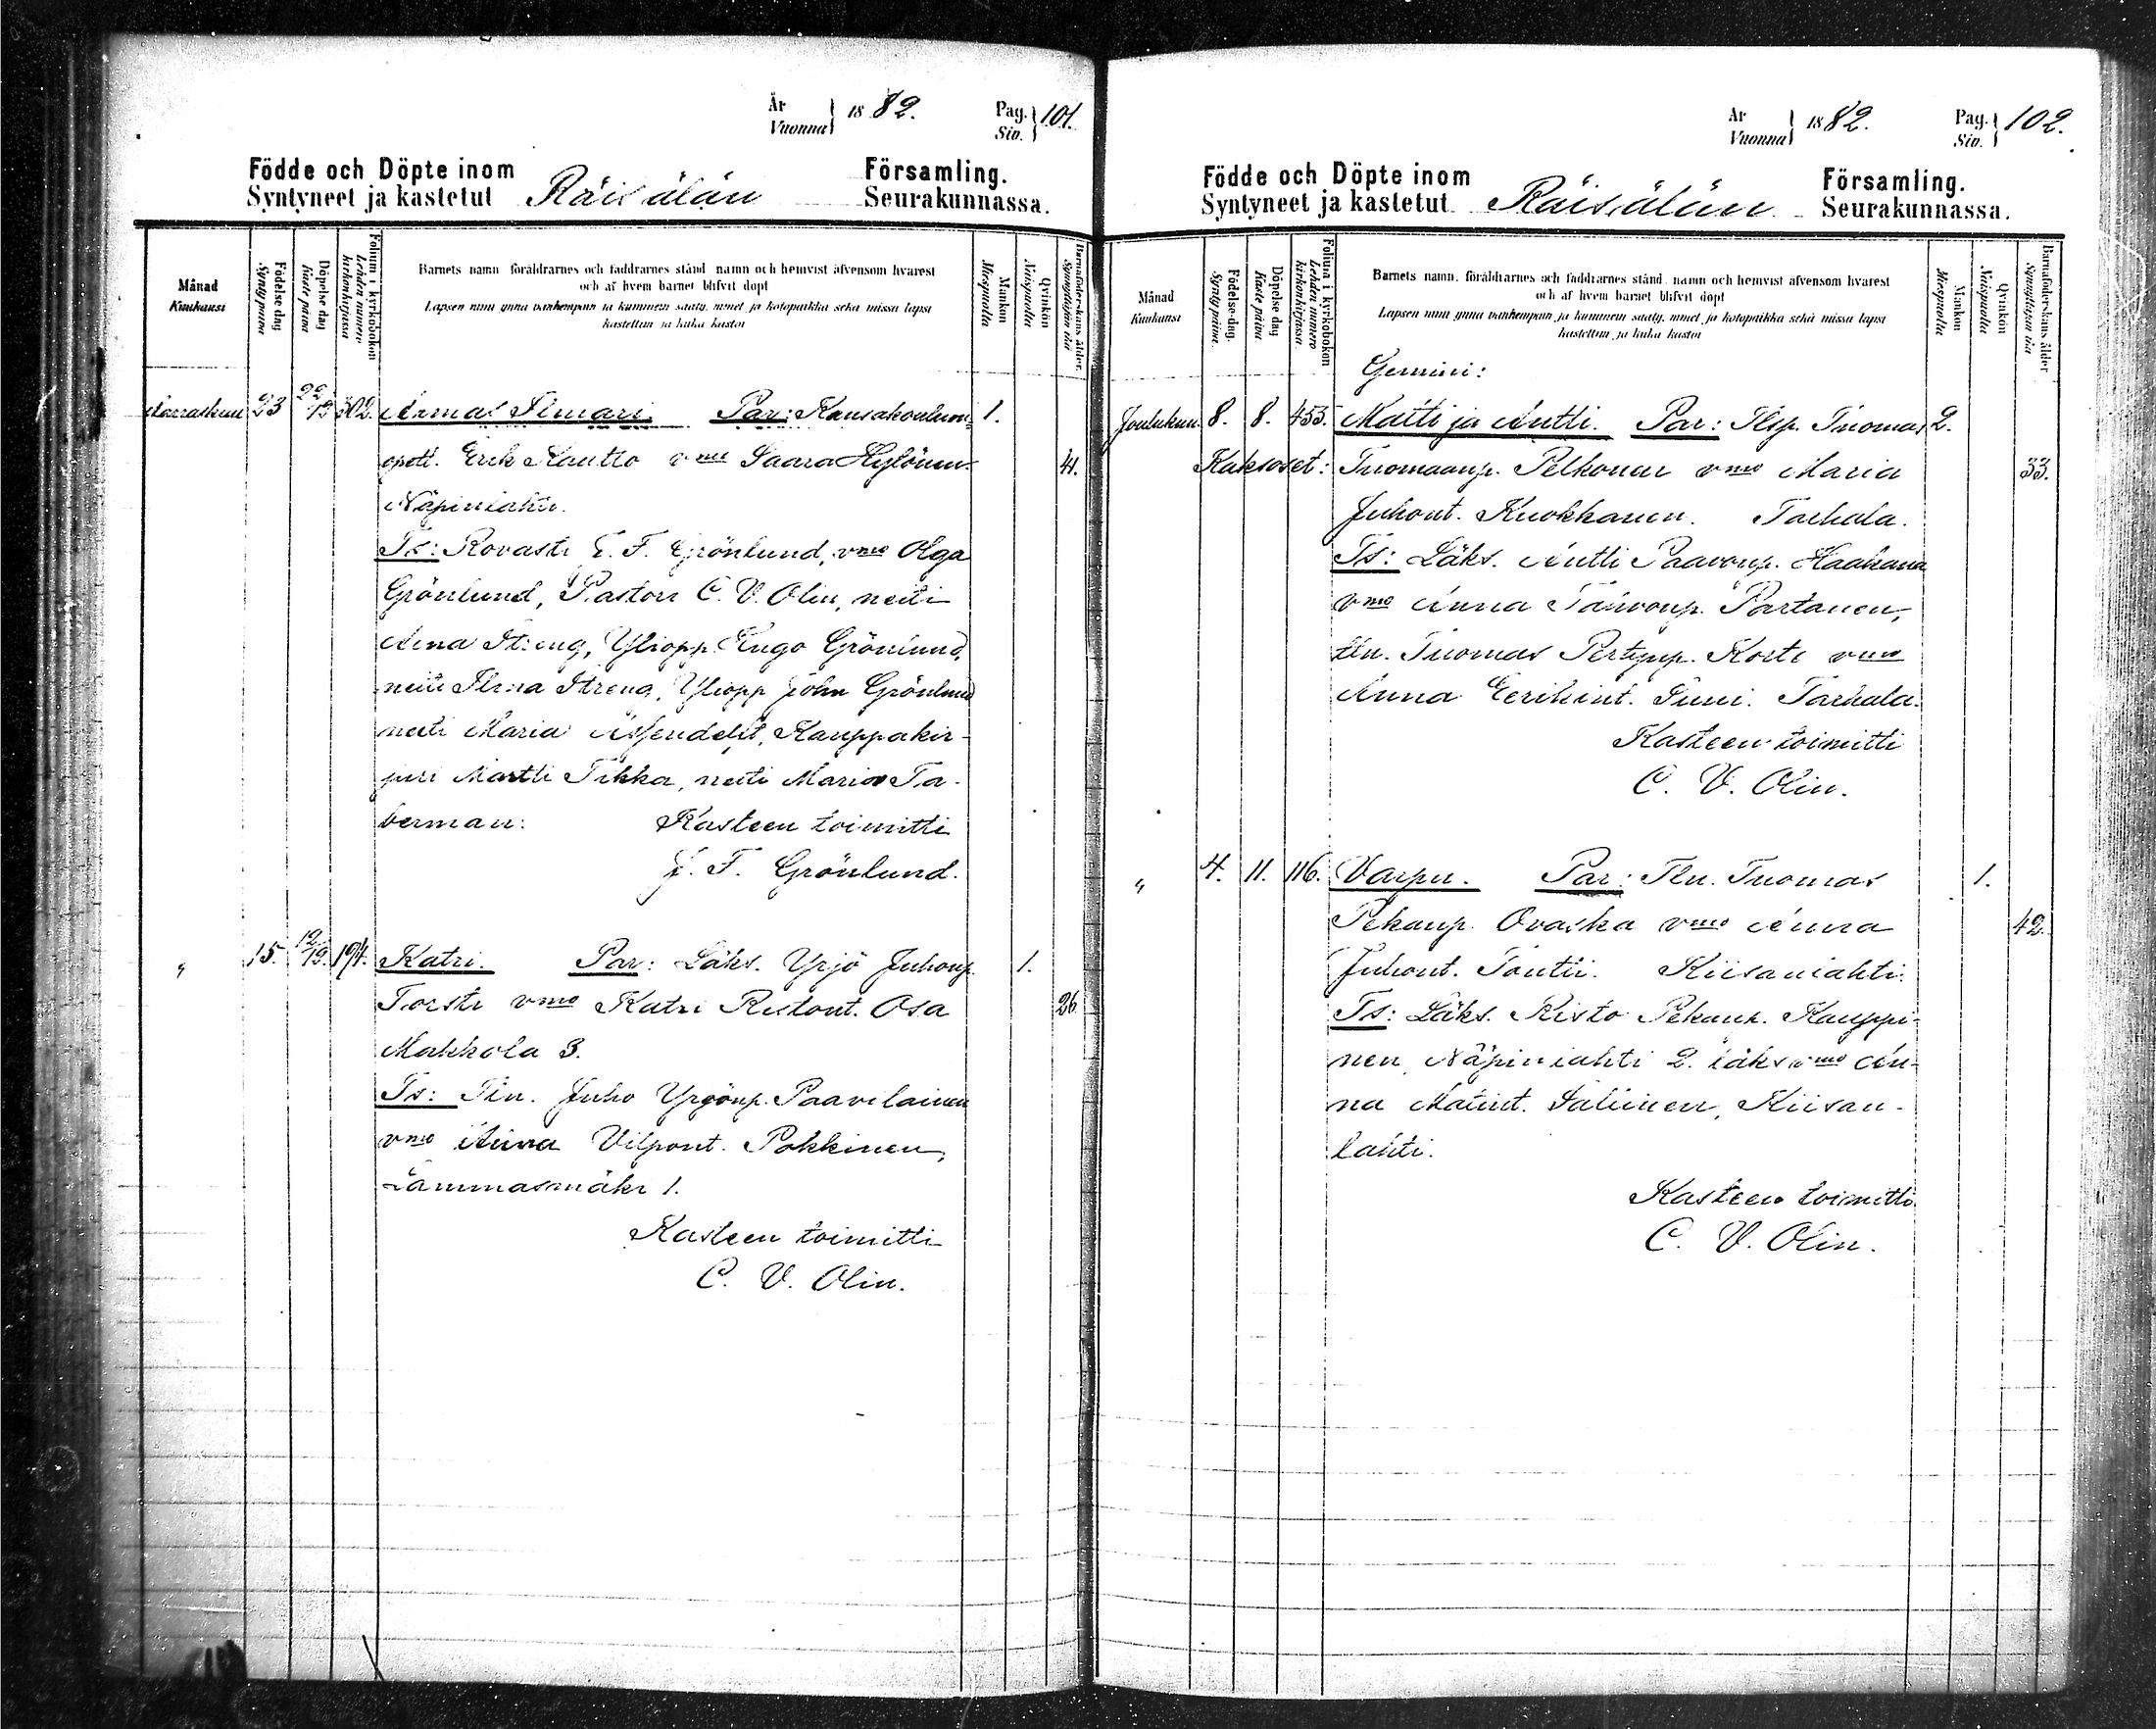 År
Vuonna } 1882. Pag.
Siv. } 101.
Födde och Döpte inom Församling.
Syntyneet ja kastetut Räisälän Seurakunnassa.
Månad
Kuukausi
Födelse dag
Synty päivä
Döpelse dag
Kaste päivä
Folium i kyrkoboken
Lehden numero kirkonkirjassa
Barnets namn föräldrarnes och faddrarnes stånd namn och hemvist äfvensom hvarest
och af hvem barnet blifvit döpt
Lapsen nimi ynnä vanhempain ja kummein sääty, nimet ja kotopaikka sekä missä lapsi
kastettiin ja kuka kastoi
Mankön
Miespuolta
Qvinkön
Naispuolta
Barnaföderskans ålder
Synnyttäjän ikä
Marraskuu 23 22/12 302. Armas Ilmari. Par: Kansakoulun- 1.
opett. Erik Kautto vmo Saara Hylönen. 41.
Näpinlahti.
Ts: Rovasti E. F. Grönlund, vmo Olga
Grönlund, Pastori C. V. Olin, neiti
Aina Streng, Yliopp. Hugo Grönlund,
neiti Ilma Streng, Yliopp John Grönlund
neiti Maria Affendelft, Kauppakir-
juri Martti Tikka, neiti Maria Ta-
berman: Kasteen toimitti
J. F. Grönlund.
" 15. 12/12. 194. Katri. Par: Läks. Yrjö Juhonp. 1.
Torsti vmo Katri Ristont. Osa 26
Makkola 3.
Ts: Tln. Juho Yrjönp. Paavilainen
vmo Anna Vilpont. Pokkinen,
Lammasmäki 1.
Kasteen toimitti
C. V. Olin.
År
Vuonna } 1882. Pag.
Siv. } 102.
Födde och Döpte inom Församling.
Syntyneet ja kastetut Räisälän Seurakunnassa.
Månad
Kuukausi
Födelse-dag.
Synty päivä.
Döpelse dag
Kaste päivä
Folium i kyrkoboken
Lehden numero kirkonkirjassa
Barnets namn, föräldrarnes och faddrarnes stånd, namn och hemvist äfvensom hvarest
och af hvem barnet blifvit döpt
Lapsen nimi ynnä vanhempain ja kummein sääty, nimet ja kotopaikka sekä missä lapsi
kastettiin ja kuka kastoi
Mankön
Miespuolta
Qvinkön
Naispuolta
Barnaföderskans ålder
Synnyttäjän ikä
Gemini:
Joulukuu. 8. 8. 455. Matti ja Antti. Par: Itsp. Tuomas 2.
Kaksoset: Tuomaanp. Pelkonen vmo Maria 33.
Juhont. Kuokkanen. Tarhala.
Ts: Läks. Antti Paavonp. Haakana
vmo Anna Paavonp. Partanen,
tln. Tuomas Pertynp. Korte vmo
Anna Eerikint. Suni. Tarhala.
Kasteen toimitti
C. V. Olin.
" 4. 11. 116. Varpu. Par: Tln. Tuomas 1.
Pekanp. Ovaska vmo Anna 42.
Juhont. Tontti. Kiisanlahti.
Ts: Läks. Risto Pekanp. Kauppi-
nen, Näpinlahti 2. läks vmo An-
na Matint. Salinen, Kiisan-
lahti.
Kasteen toimitti
C. V. Olin.